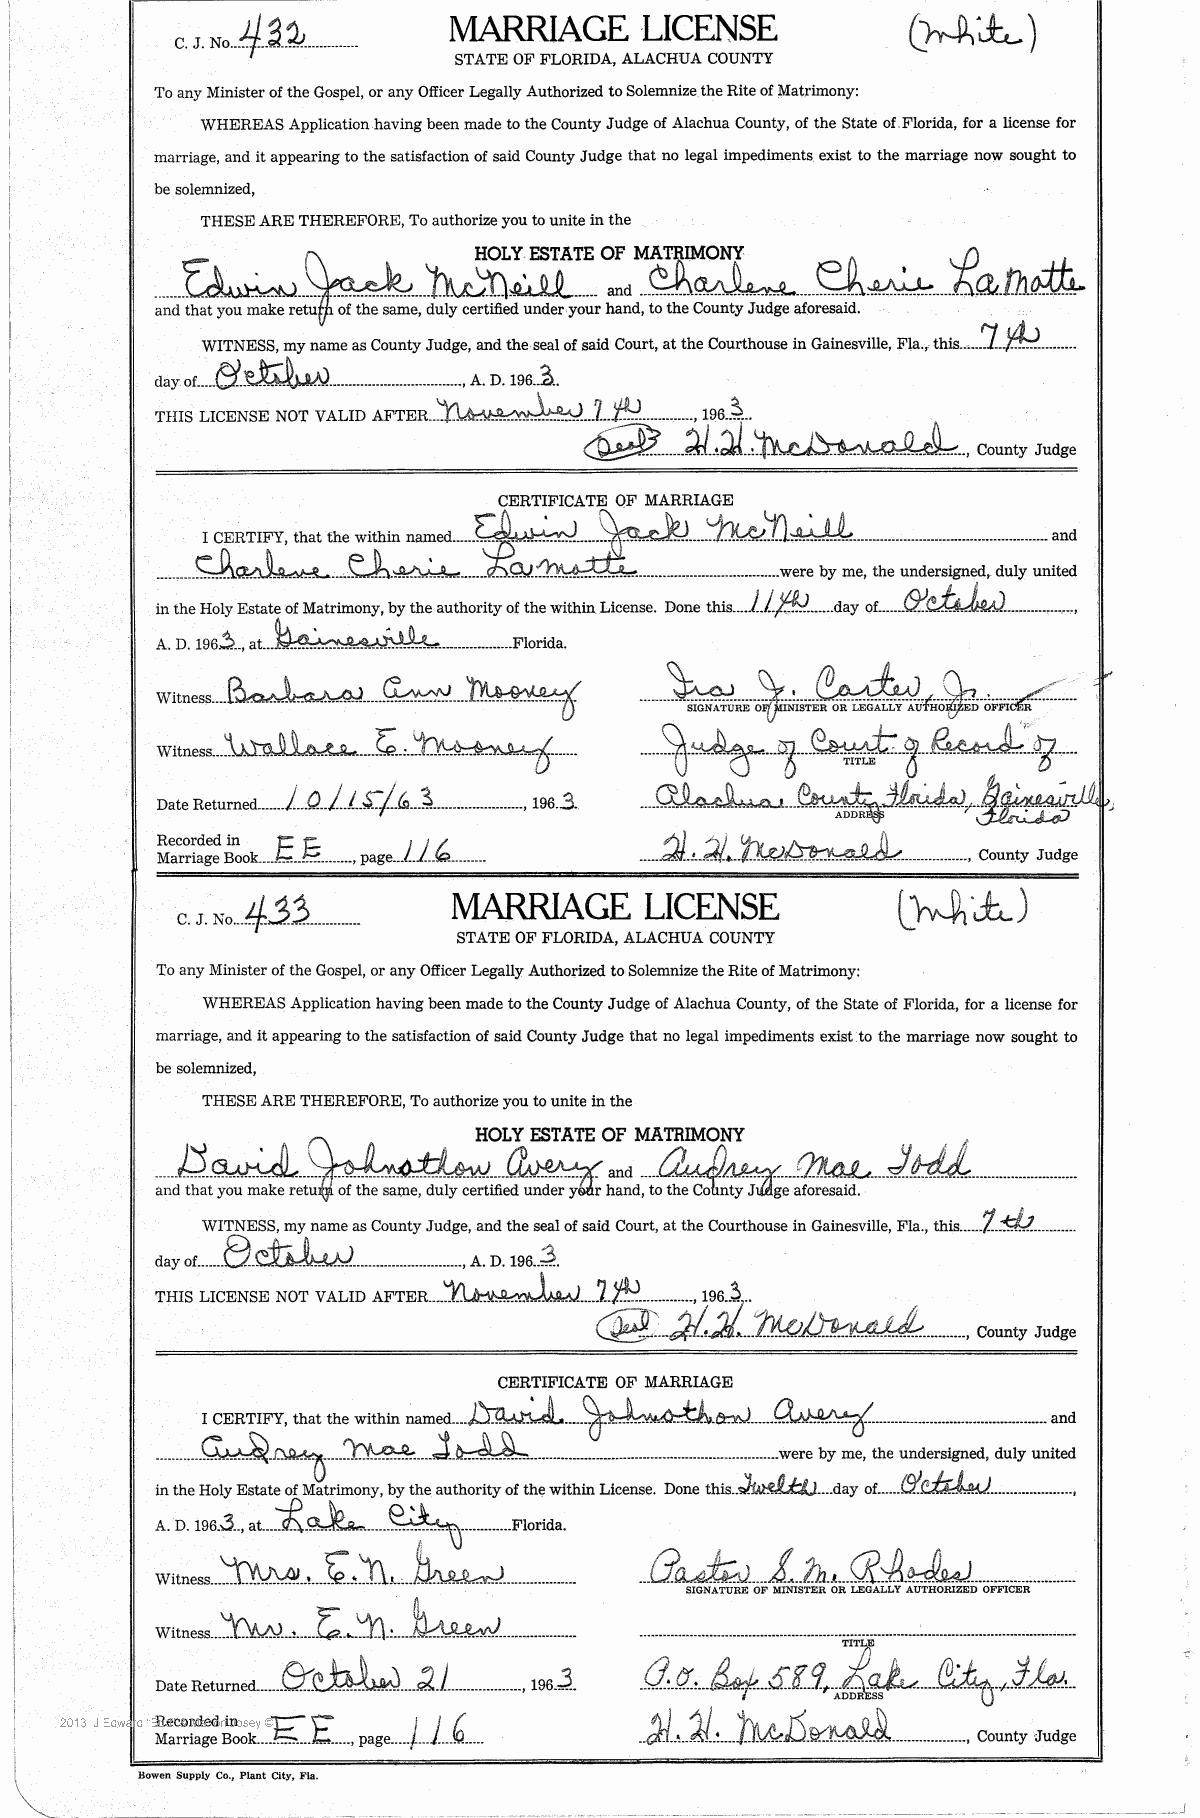 C. J. No. 432 MARRIAGE LICENSE (White)
STATE OF FLORIDA, ALACHUA COUNTY
To any Minister of the Gospel, or any Officer Legally Authorized to Solemnize the Rite of Matrimony:
WHEREAS Application having been made to the County Judge of Alachua County, of the State of Florida, for a license for
marriage, and it appearing to the satisfaction of said County Judge that no legal impediments exist to the marriage now sought to
be solemnized,
THESE ARE THEREFORE, To authorize you to unite in the
HOLY ESTATE OF MATRIMONY
Edwin Jack McNeill and Charlene Cherie LaMotte
and that you make return of the same, duly certified under your hand, to the County Judge aforesaid.
WITNESS, my name as County Judge, and the seal of said Court, at the Courthouse in Gainesville, Fla., this 7th
day of October, A. D. 1963.
THIS LICENSE NOT VALID AFTER November 7th, 1963.
(Seal) H. H. McDonald, County Judge
CERTIFICATE OF MARRIAGE
I CERTIFY, that the within named Edwin Jack McNeill and
Charlene Cherie LaMotte were by me, the undersigned, duly united
in the Holy Estate of Matrimony, by the authority of the within License. Done this 11th day of October,
A. D. 1963, at Gainesville Florida.
Witness Barbara Ann Mooney Ira J. Carter, Jr.
SIGNATURE OF MINISTER OR LEGALLY AUTHORIZED OFFICER
Witness Wallace E. Mooney Judge of Court of Record of
TITLE
Date Returned 10/15/63, 1963 Alachua County, Florida, Gainesville,
ADDRESS Florida
Recorded in
Marriage Book EE, page 116 H. H. McDonald, County Judge
C. J. No. 433 MARRIAGE LICENSE (White)
STATE OF FLORIDA, ALACHUA COUNTY
To any Minister of the Gospel, or any Officer Legally Authorized to Solemnize the Rite of Matrimony:
WHEREAS Application having been made to the County Judge of Alachua County, of the State of Florida, for a license for
marriage, and it appearing to the satisfaction of said County Judge that no legal impediments exist to the marriage now sought to
be solemnized,
THESE ARE THEREFORE, To authorize you to unite in the
HOLY ESTATE OF MATRIMONY
David Johnathon Avery and Audrey Mae Todd
and that you make return of the same, duly certified under your hand, to the County Judge aforesaid.
WITNESS, my name as County Judge, and the seal of said Court, at the Courthouse in Gainesville, Fla., this 7th
day of October, A. D. 1963.
THIS LICENSE NOT VALID AFTER November 7th, 1963.
(Seal) H. H. McDonald, County Judge
CERTIFICATE OF MARRIAGE
I CERTIFY, that the within named David Johnathon Avery and
Audrey Mae Todd were by me, the undersigned, duly united
in the Holy Estate of Matrimony, by the authority of the within License. Done this Twelth day of October,
A. D. 1963, at Lake City Florida.
Witness Mrs. E. N. Green Pastor S. M. Rhodes
SIGNATURE OF MINISTER OR LEGALLY AUTHORIZED OFFICER
Witness Mr. E. N. Green
TITLE
Date Returned October 21, 1963 P.O. Box 589, Lake City, Fla.
ADDRESS
2013 J Edward
Recorded in
Marriage Book EE, page 116 H. H. McDonald, County Judge
Bowen Supply Co., Plant City, Fla.